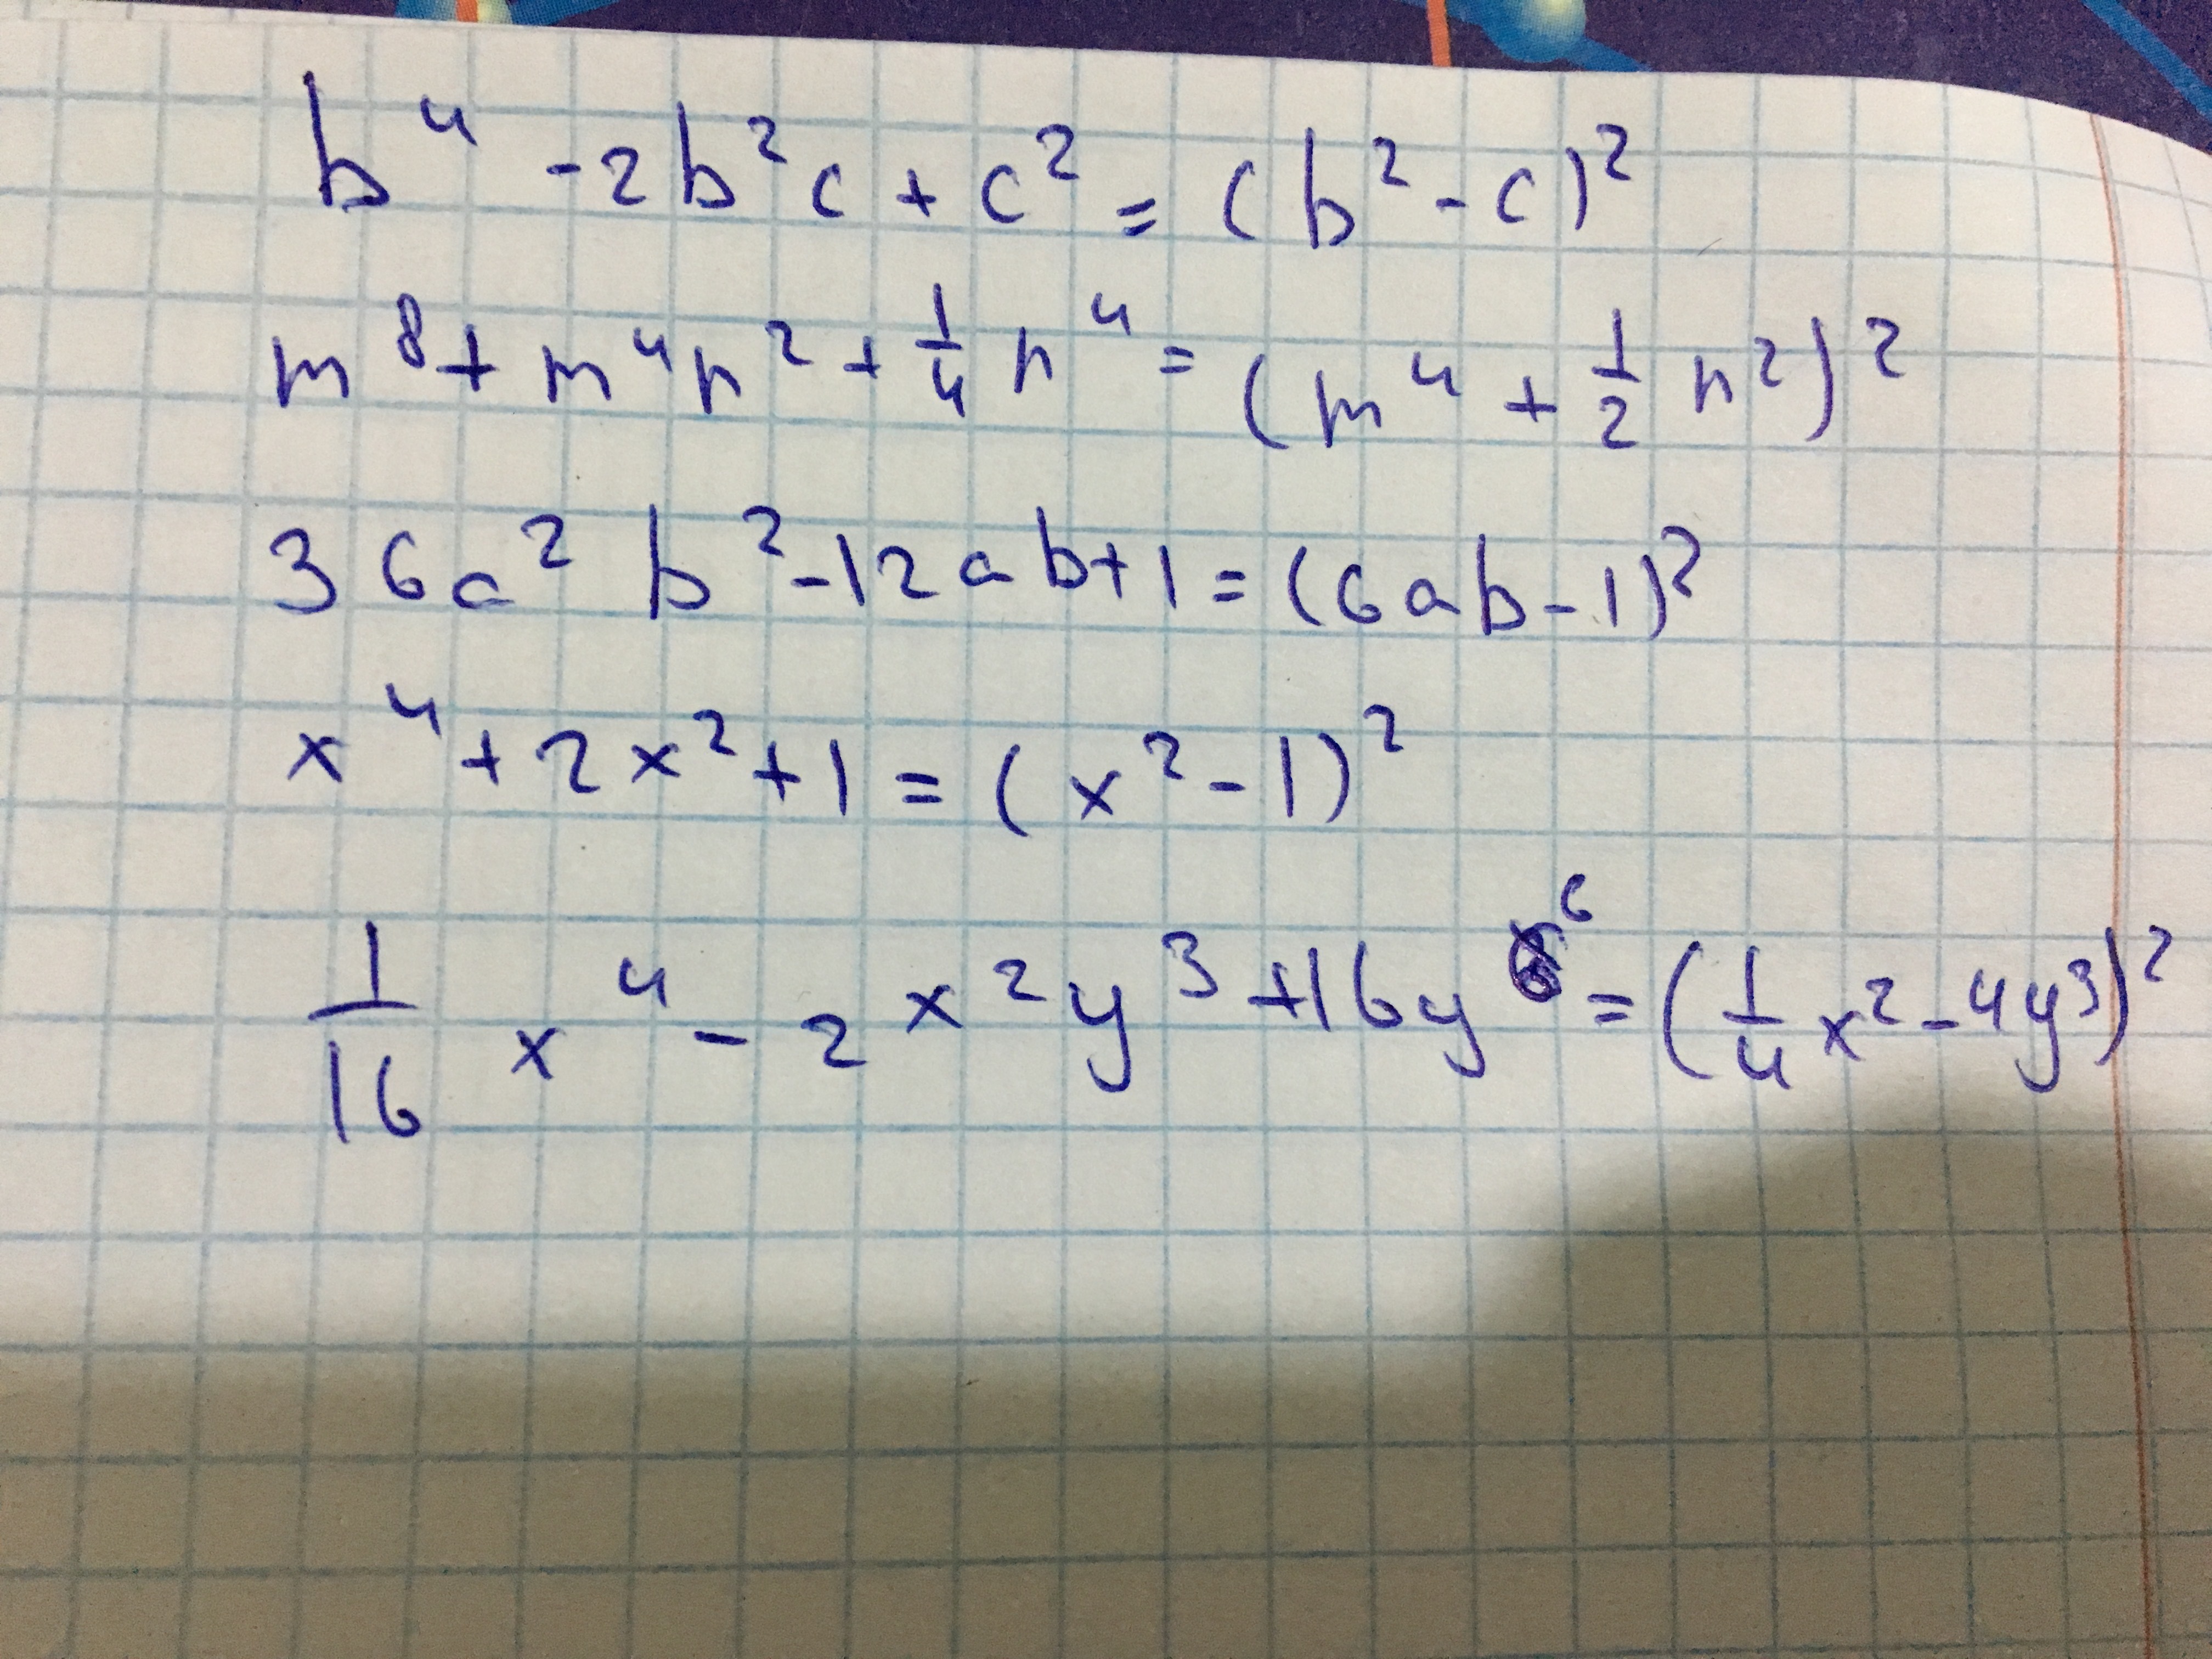 b⁴ - 2b²c + c² = (b² - c)²
m⁸ + m⁴n² + 1/4 n⁴ = (m⁴ + 1/2 n²)²
36a² b² - 12ab + 1 = (6ab - 1)²
x⁴ + 2x² + 1 = (x² - 1)²
1/16 x⁴ - 2x²y³ + 16y⁶ = (1/4 x² - 4y³)²